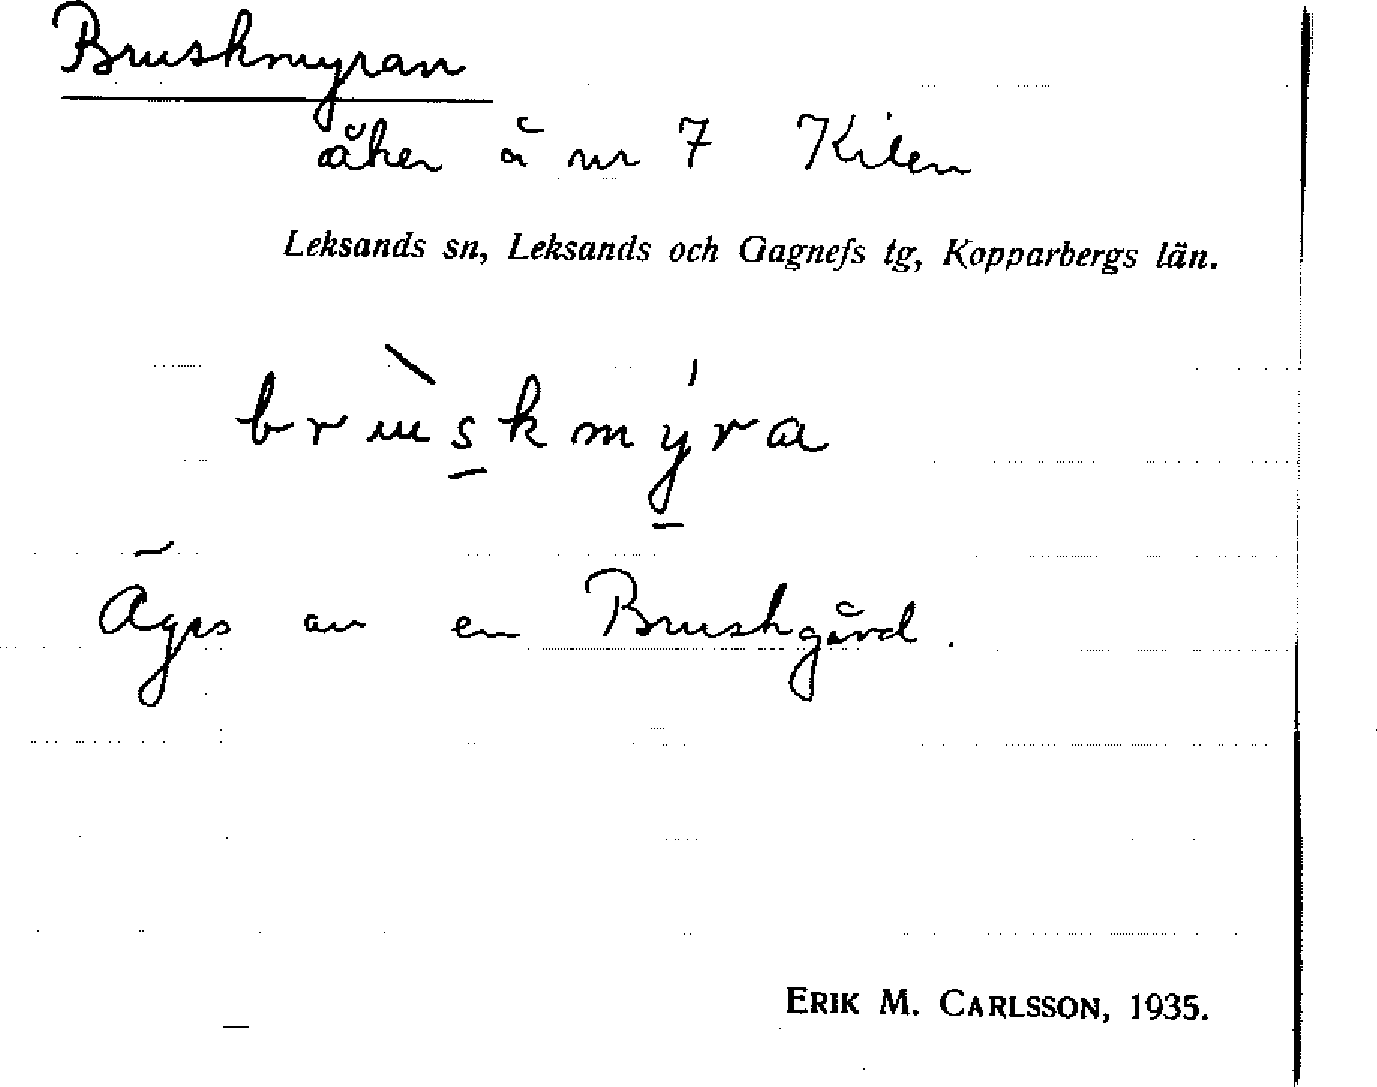 Bruskmyran
åker å nr 7 Kilen
Leksands sn, Leksands och Gagnefs tg, Kopparbergs län.
brùskmýra
Äges av en Bruskgård.
ERIK M. CARLSSON, 1935.